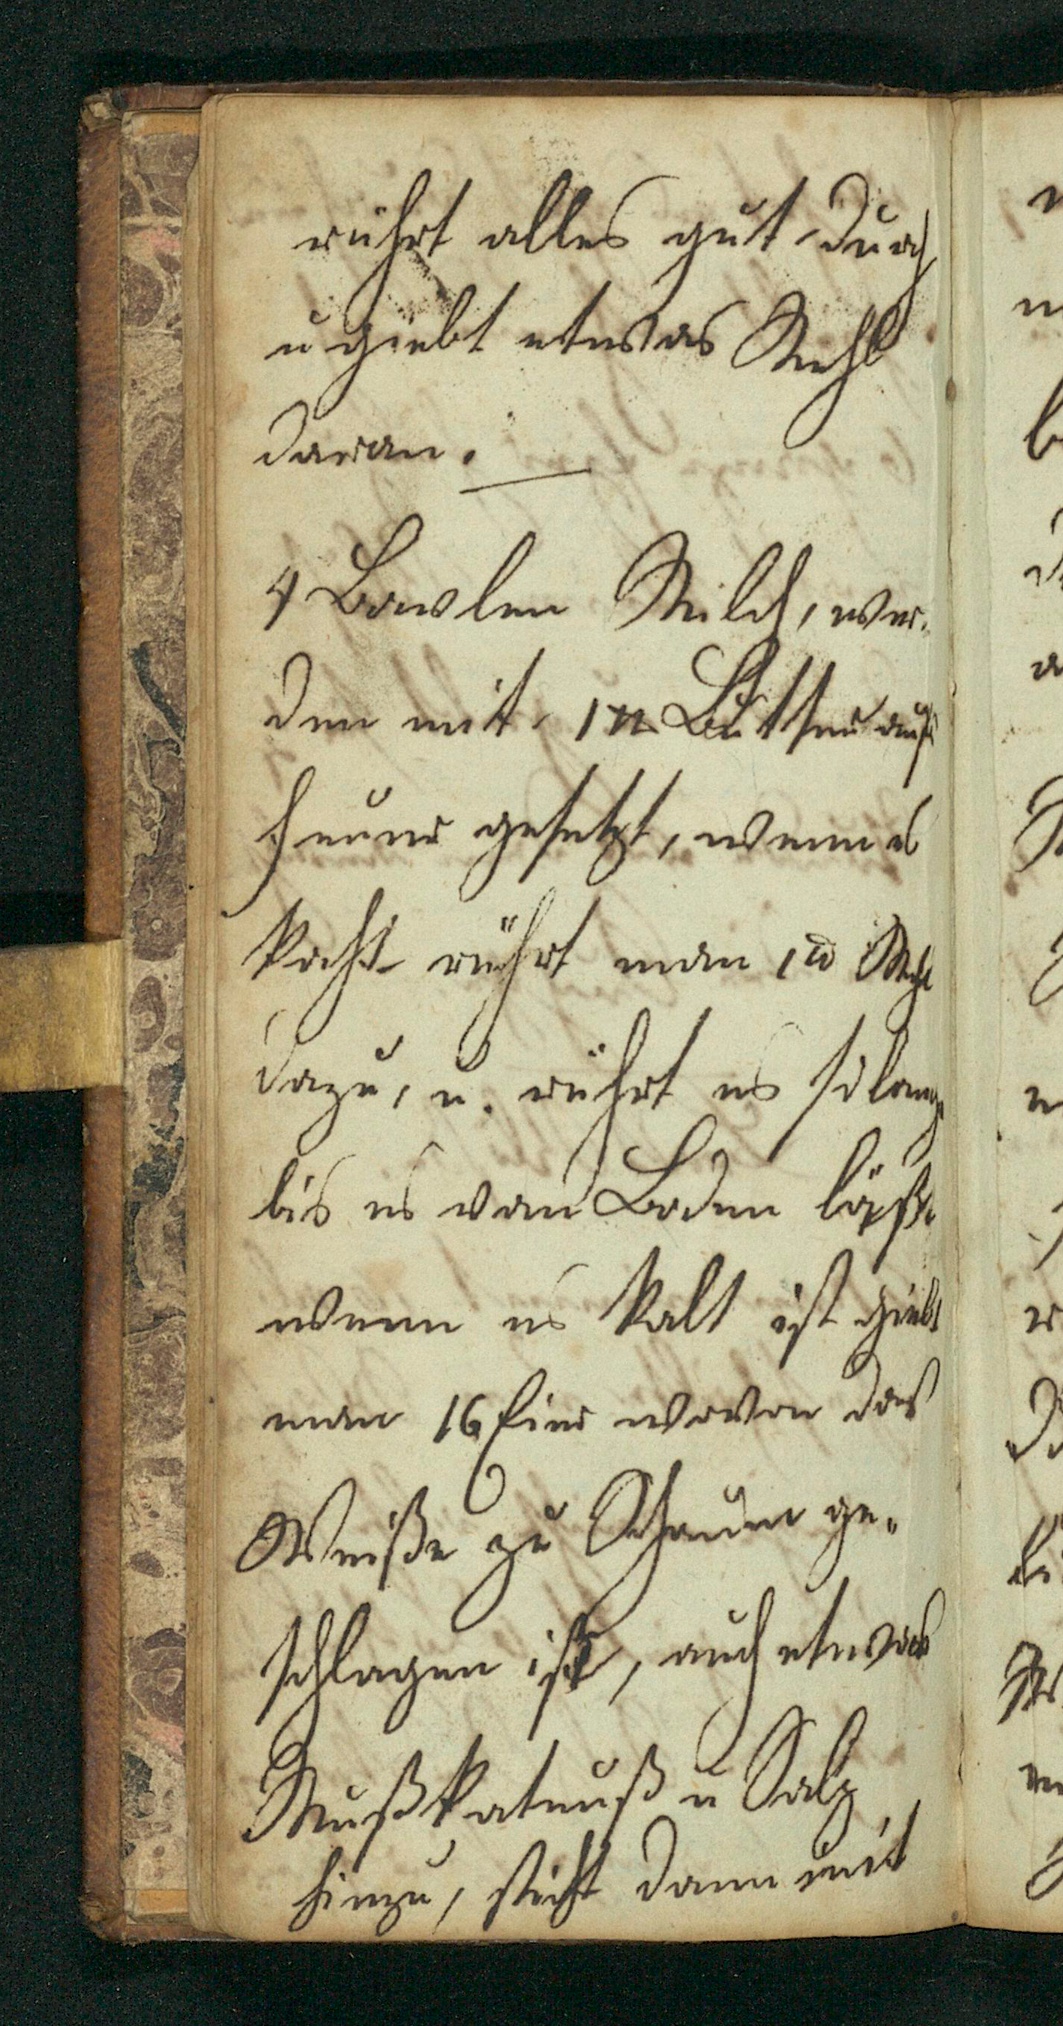 rührt alles gut durch
u giebt etwas Mehl
daran.
4 Bowlen Milch, wer-
den mit 1 ℔ Butter aufs
Feuer gesetzt, wenn es
kocht rührt man 1 ℔ Mehl
dazu, u. rührt es solange
bis es vom Boden läßt.
wenn es kalt ist giebt
man 16 Eier wovon das
Weiße zu Schaum ge-
schlagen ist, auch etwas
Mußkatnuß u Salz
hinzu, sticht dann mit